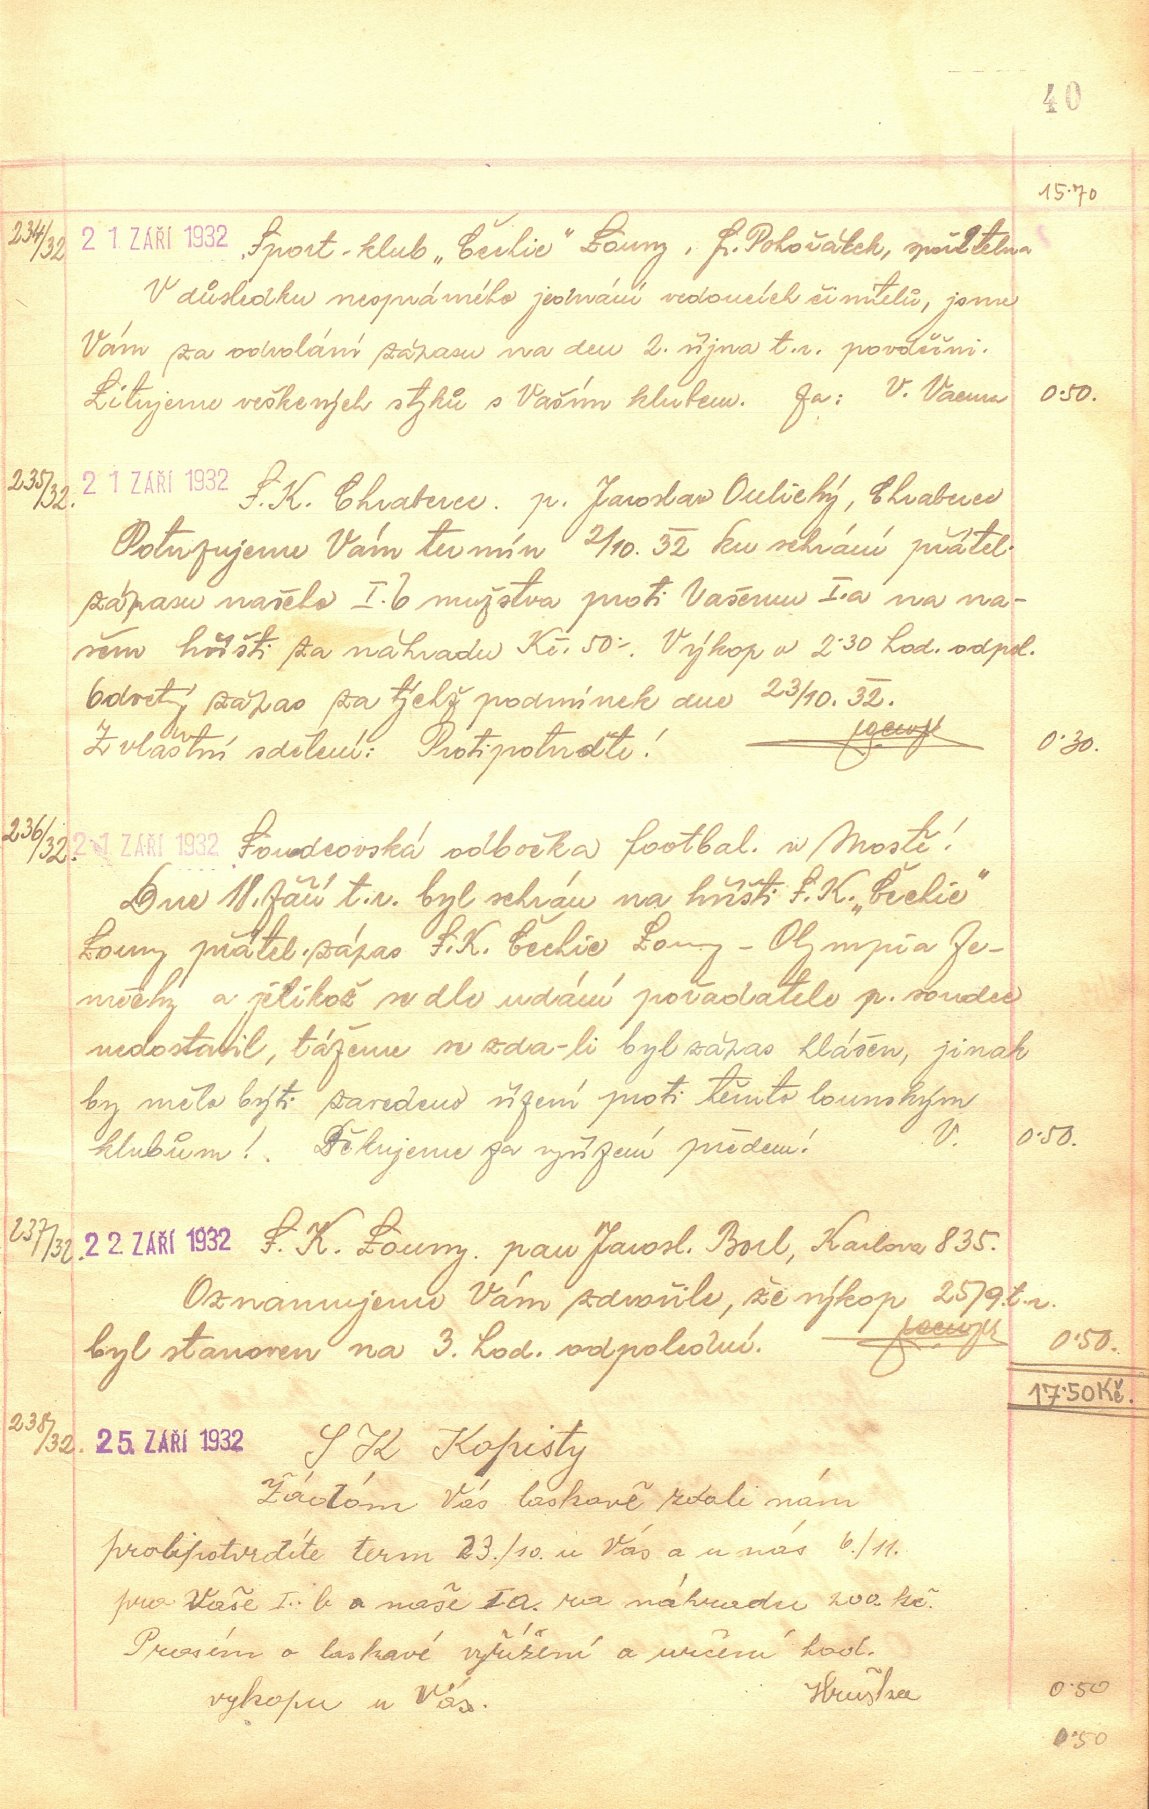 40
15·70
234/32 21 ZÁŘÍ 1932 Sport-klub „Čechie" Louny. Fr. Pohořálek, spořitelna
V důsledku nesprávného jednání vedoucích činitelů, jsme
Vám za odvolání zápasu na den 2. října t.r. povděčni.
Litujeme veškerých styků s Vaším klubem. Za: V. Vacma 0·50.
235/32. 21 ZÁŘÍ 1932 S.K. Chraberce. p. Jaroslav Oulický, Chraberce
Potvrzujeme Vám termín 2/10. 32 ku sehrání přátel.
zápasu našeho I.b mužstva proti Vašemu I.a na na-
šem hřišti za náhradu Kč. 50·-. Výkop v 2·30 hod. odpol.
Odvetný zápas za týchž podmínek dne 23/10. 32.
Zvláštní sdělení: Protipotvrďte! 0·30.
236/32. 21 ZÁŘÍ 1932 Soudcovská odbočka footbal. v Mostě!
Dne 18. září t.r. byl sehrán na hřišti S.K. „Čechie"
Louny přátel. zápas S.K. Čechie Louny - Olympia Je-
měchy a jelikož se dle udání pořadatele p. soudce
nedostavil, tážeme se zda-li byl zápas hlášen, jinak
by mělo býti zavedeno řízení proti těmto lounským
klubům!. Děkujeme za vyřízení předem! V. 0·50.
237/32. 22 ZÁŘÍ 1932 S.K. Louny. pan Jarosl. Borl, Karlova 835.
Oznamujeme Vám zdvořile, že výkop 25/9. t.r.
byl stanoven na 3. hod. odpolední. 0·50.
17·50 Kč.
238/32. 25. ZÁŘÍ 1932 S K Kopisty
Žádám Vás laskavě zdali nám
protipotvrdíte term 23./10. u Vás a u nás 6./11.
pro Vaše I. b a naše I a. za náhradu 200. kč.
Prosím o laskavé vyřížení a určení hod.
vykopu u Vás. Hruška 0·50
0·50